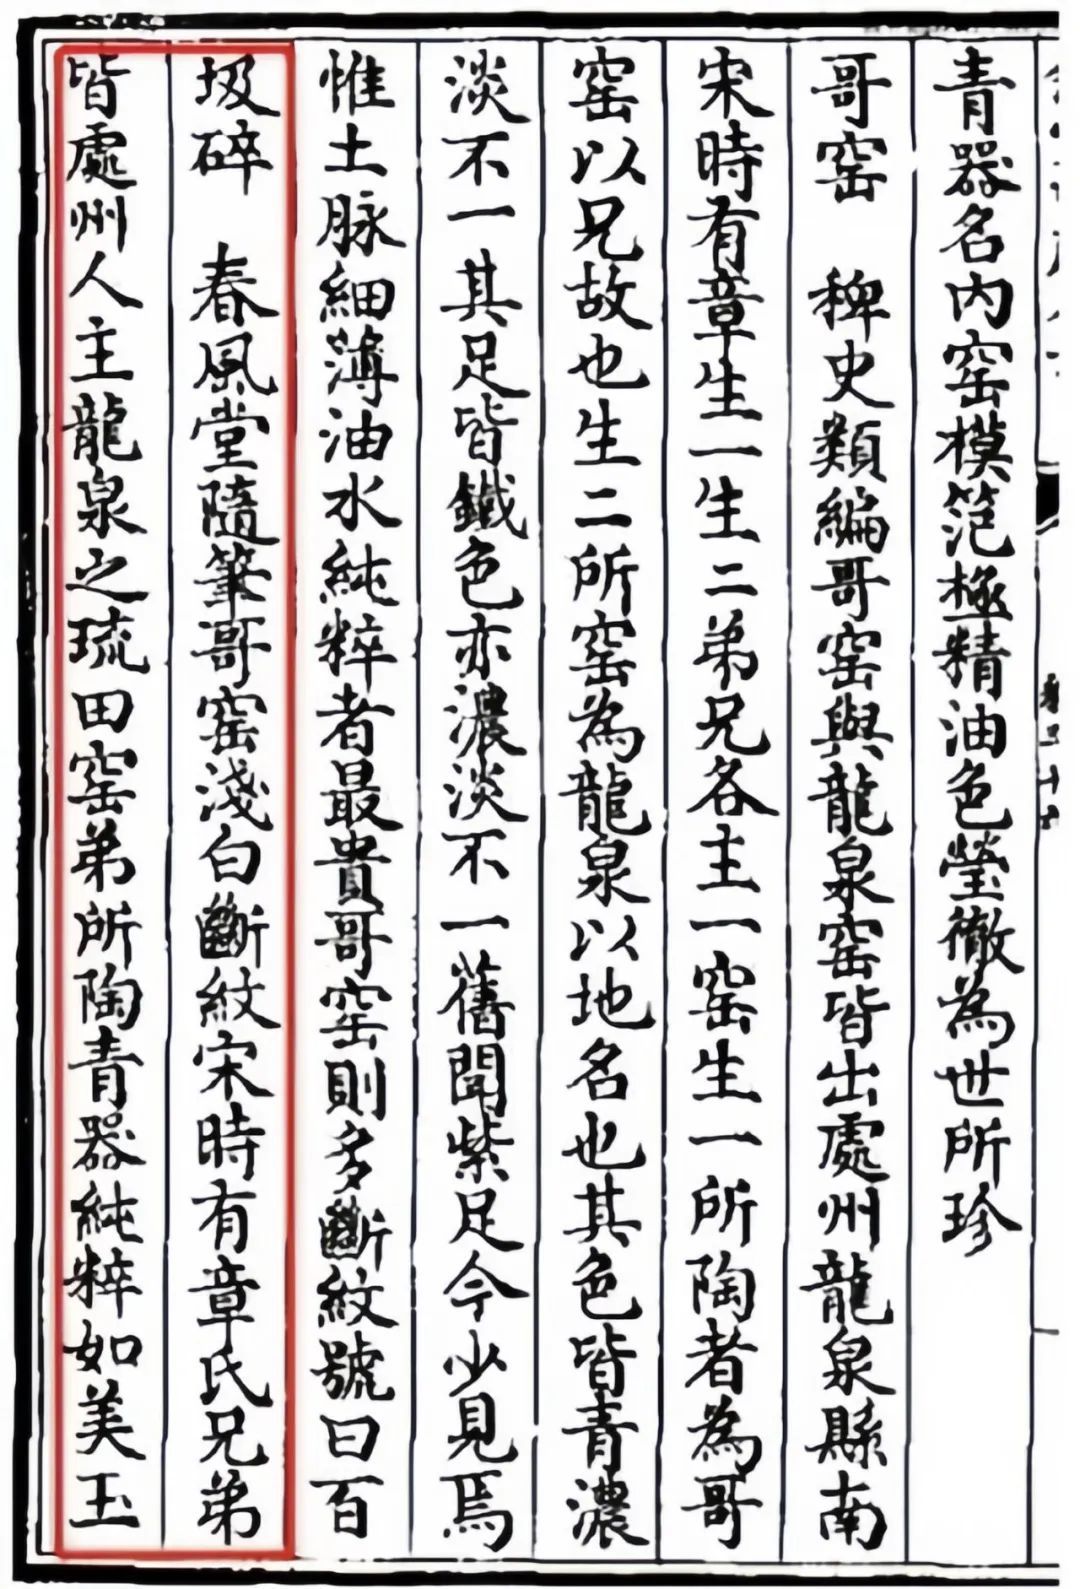 青器名內窑模范極精油色瑩徹為世所珍
哥窑　稗史類編哥窑與龍泉窑皆出處州龍泉縣南
宋時有章生一生二弟兄各主一窑生一所陶者為哥
窑以兄故也生二所窑為龍泉以地名也其色皆青濃
淡不一其足皆鐵色亦濃淡不一舊聞紫足今少見焉
惟土脉細薄油水純粹者最貴哥窑則多斷紋號曰百
圾碎　春風堂隨筆哥窑淺白斷紋宋時有章氏兄弟
皆處州人主龍泉之琉田窑弟所陶青器純粹如美玉